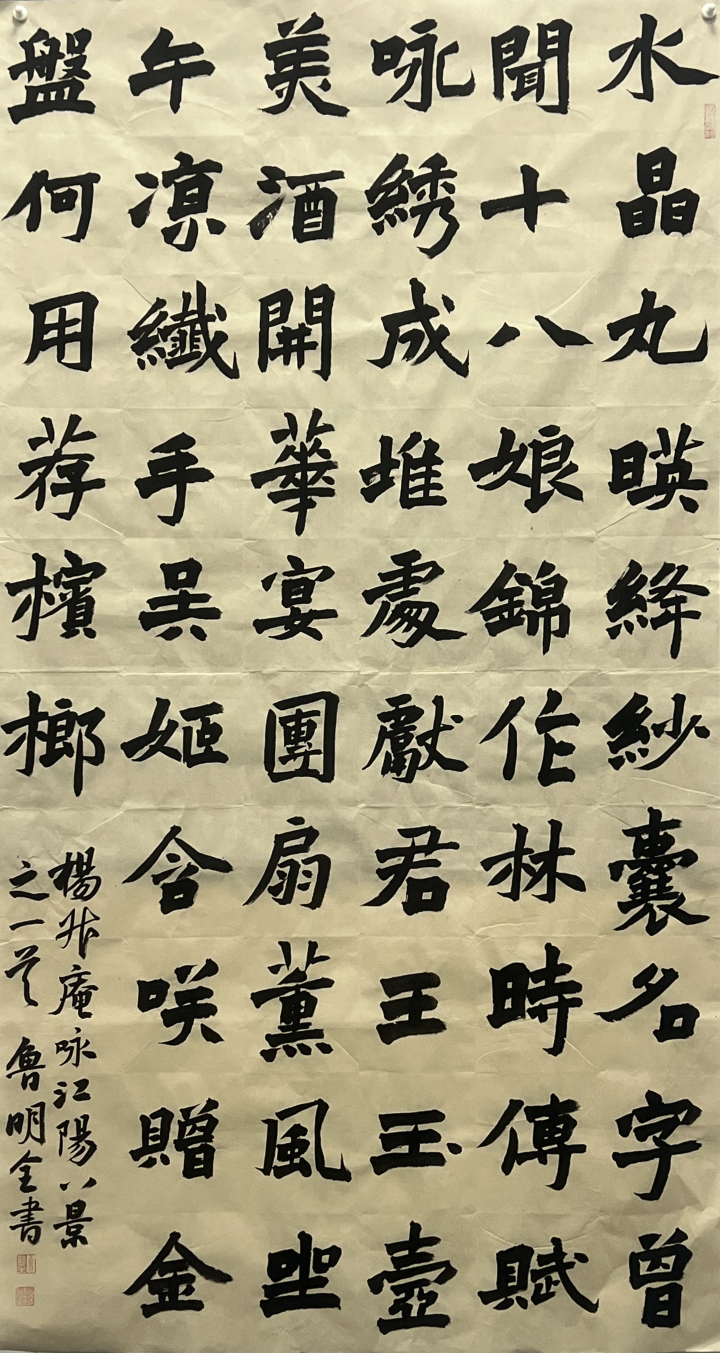 水晶丸暎絳紗囊名字曾
聞十八娘錦作林時傳賦
咏綉成堆處獻君王玉壺
美酒開華宴團扇薰風坐
午凉纖手吴姬含咲贈金
盤何用荐檳榔
楊升庵咏江陽八景
之一首 魯明全書